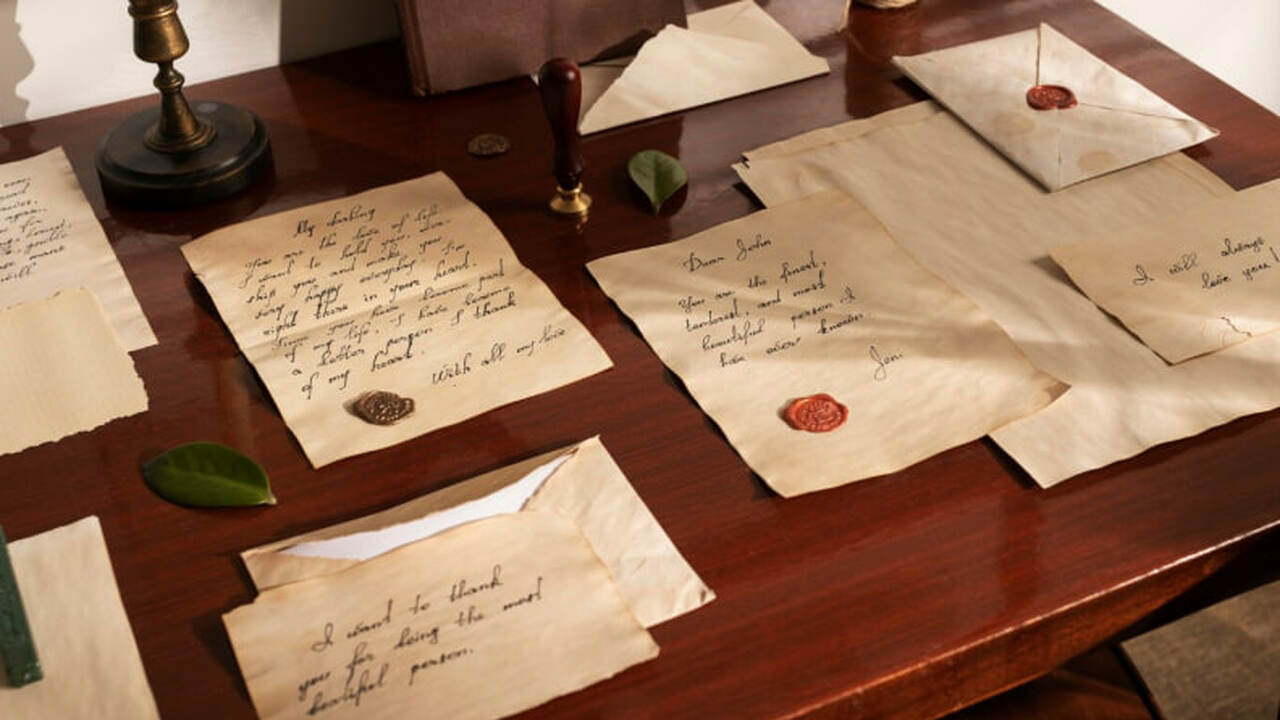 My darling
You are the love of life
I want to hold you,
you and make you
very happy everyday. I'm
right there in your heart.
You have become part
of my life, I have become
a better person I thank
of my heart.
With all my love
Dear John
You are the finest,
tenderest, and most
beautiful person I
have ever known
Joni
I will always
love you!
I want to thank
you for being the most
beautiful person.